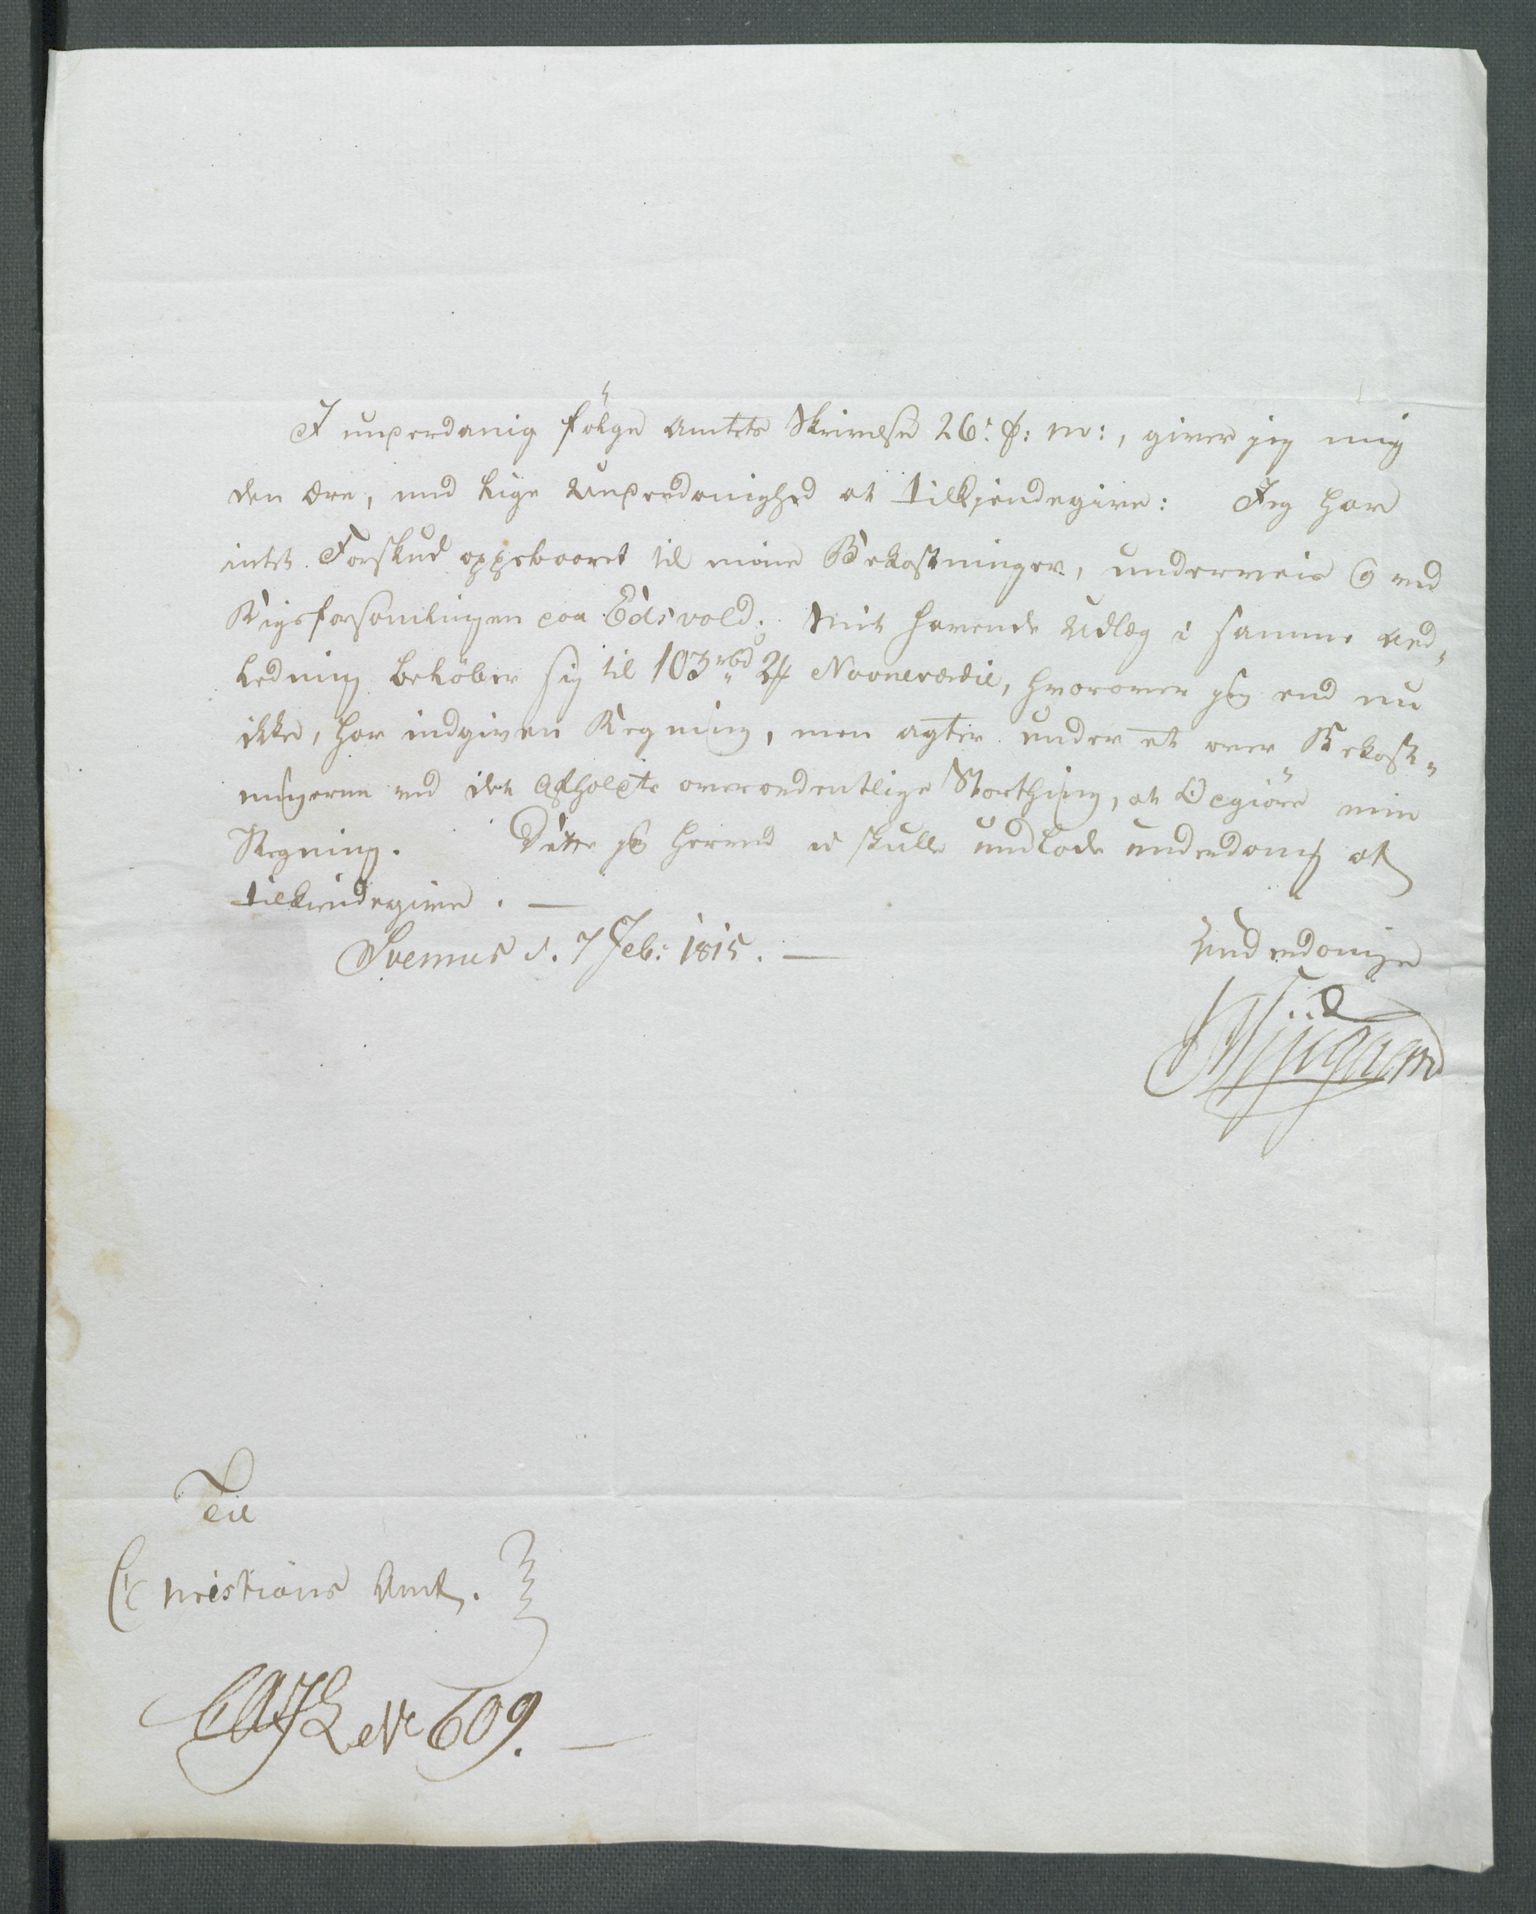 I underdanig følge Amtets Skrivelse 26: p: m:, giver jeg mig
den Ære, med lige Underdanighed at tilkjendegive: Jeg har
intet Forskud oppebaaret til mine Bekostninger, underveis og ved
Rigsforsamlingen paa Edsvold. Mit havende Udlæg i samme An-
ledning beløber sig til 103 rbd 24 Navneværdie, hvorover jeg end nu
ikke, har indgiven Regning, men agter under et over Bekost-
ningerne ved det afholdte overordentlige Storthing, at opgiøre min
Regning. Dette jeg herved ei skulle undlade underdanig at
tilkiendegive. —
Svennes d. 7 Feb: 1815. —
Underdanigst
Til
Christians Amt.
No 609. —